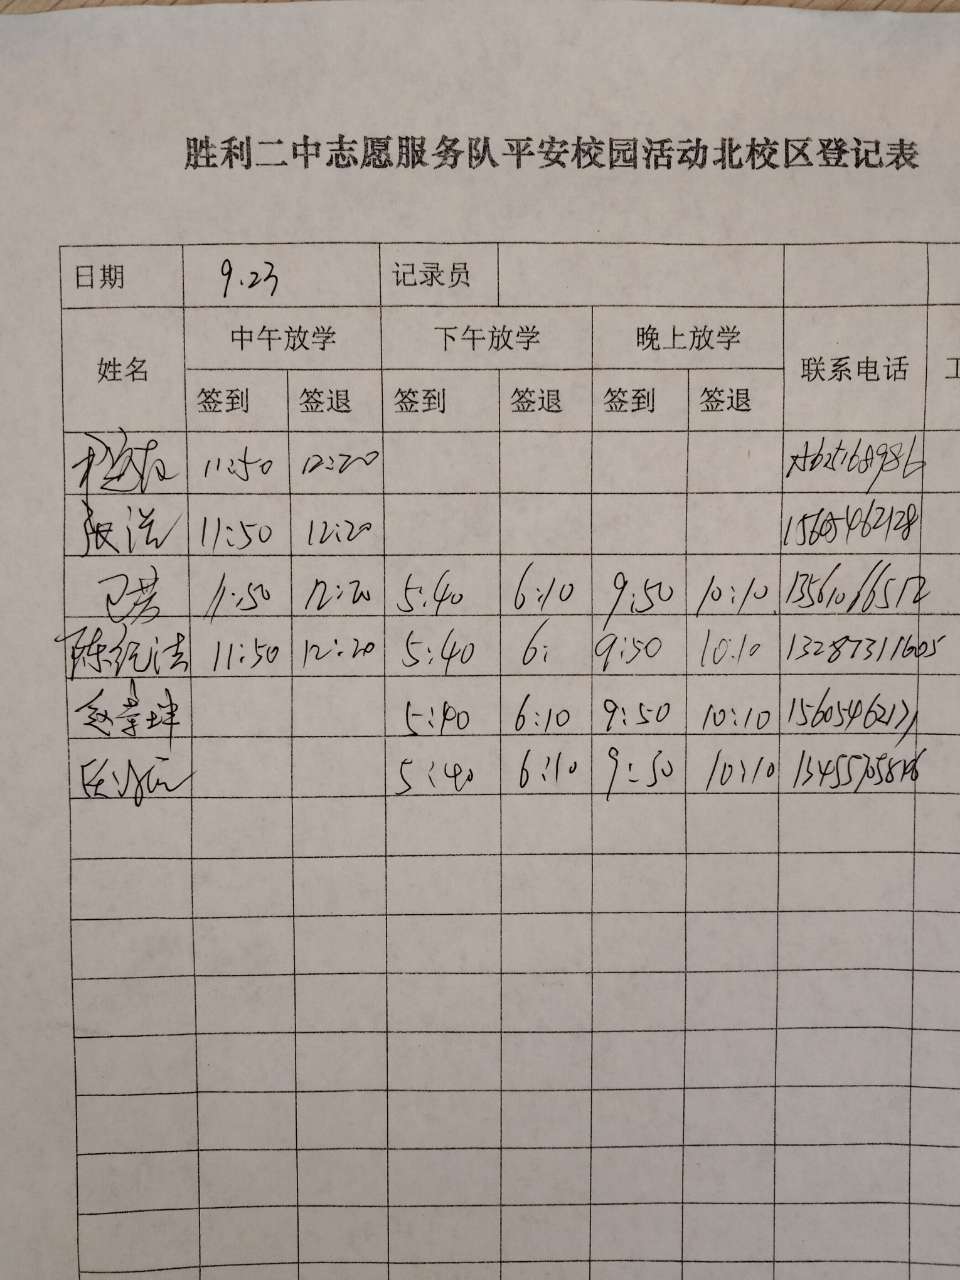 胜利二中志愿服务队平安校园活动北校区登记表
日期 9.23 记录员
姓名 中午放学 下午放学 晚上放学 联系电话
签到 签退 签到 签退 签到 签退
11:50 12:20
张浩 11:50 12:20 15605462128
11:50 12:20 5:40 6:10 9:50 10:10
陈纪法 11:50 12:20 5:40 6: 9:50 10:10 13287311605
赵景坤 5:40 6:10 9:50 10:10 15605462171
5:40 6:10 9:50 10:10